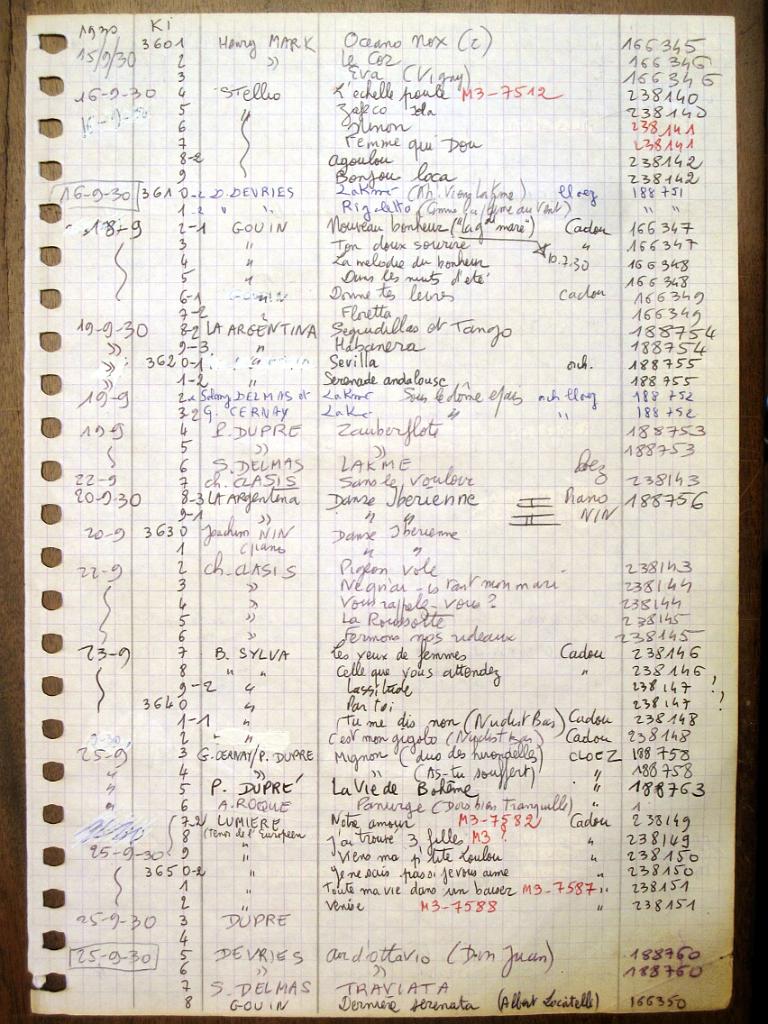 1930 Ki
15/9/30 3601 Henry MARK Oceano Nox (2) 166345
2 » Le Cor 166346
3 Eva (Vigny) 166346
16-9-30 4 Stellio L'echelle poule M3-7512 238140
5 Zafeco Ida 238140
6 238141
7 Femme qui Dou 238141
8-2 agoulou 238142
9 Bonjou loca 238142
16-9-30 3610-2 D. DEVRIES Lakmé (Ah. Viens Lakmé) Cloez 188751
1-2 " " Rigoletto (Comme la plume au Vent) " "
18-9 2-1 GOUIN Nouveau bonheur ("La gde mare") Cadou 166347
3 " Ton doux sourire " 166347
4 " La melodie du bonheur 10.7.30 166348
5 " Dans les nuits d'été 166348
6-1 GOUIN Donne tes levres Cadou 166349
7-2 " Floretta 166349
19-9-30 8-2 LA ARGENTINA Seguidillas et Tango 188754
» 9-3 " Habanera 188754
» 3620-1 Sevilla orch. 188755
» 1-2 " Serenade andalouse 188755
19-9 2 Solang DELMAS et Lakmé Sous le dôme épais orch Cloez 188752
3-2 G. CERNAY Lakmé " " 188752
19-9 4 P. DUPRE Zauberflote 188753
5 » » 188753
6 S. DELMAS LAKME Cloez
22-9 7 ch. CLASIS Sans le vouloir 238143
20-9-30 8-3 LA Argentina Danse Iberienne Piano 188756
9-1 » " " NIN
20-9 3630 Joachim NIN Danse Iberienne
1 (piano " "
22-9 2 ch. CLASIS Pigeon vole 238143
3 » 238144
4 » Vous rappelez-vous? 238144
5 » La Roussotte 238145
6 » Fermons nos rideaux 238145
23-9 7 B. SYLVA Les yeux de femmes Cadou 238146
8 " " Celle que vous attendez " 238146
9-2 " Lassitude 238147 !
3640 " Par toi 238147 !
1-1 " Tu me dis non (Nudist Bar) Cadou 238148
2 C'est mon gigolo (Nudist Bar) Cadou 238148
25-9 3 G. CERNAY/P. DUPRE Mignon (duo des hirondelles) CLOEZ 188758
" 4 » " (As-tu souffert) " 188758
" 5 P. DUPRÉ La Vie de Bohême " 188763
" 6 A. ROCQUE Panurge (Dors bien tranquille) "
7-2 LUMIERE Notre amour M3-7582 Cadou 238149
8 (Tenor de l'Européen J'ai trouvé 3 filles M3 ? " 238149
25-9-30 9 " Viens ma p'tite Loulou " 238150
3650-2 " Je ne sais pas si je vous aime " 238150
1 " Toute ma vie dans un baiser M3-7587 " 238151
2 " Venise M3-7588 " 238151
25-9-30 3 DUPRE
4
25-9-30 5 DEVRIES air d'ottavio (Don Juan) 188760
6 » » 188760
7 S. DELMAS TRAVIATA
8 GOUIN Dernière serenata (Albert Locatelli) 166350